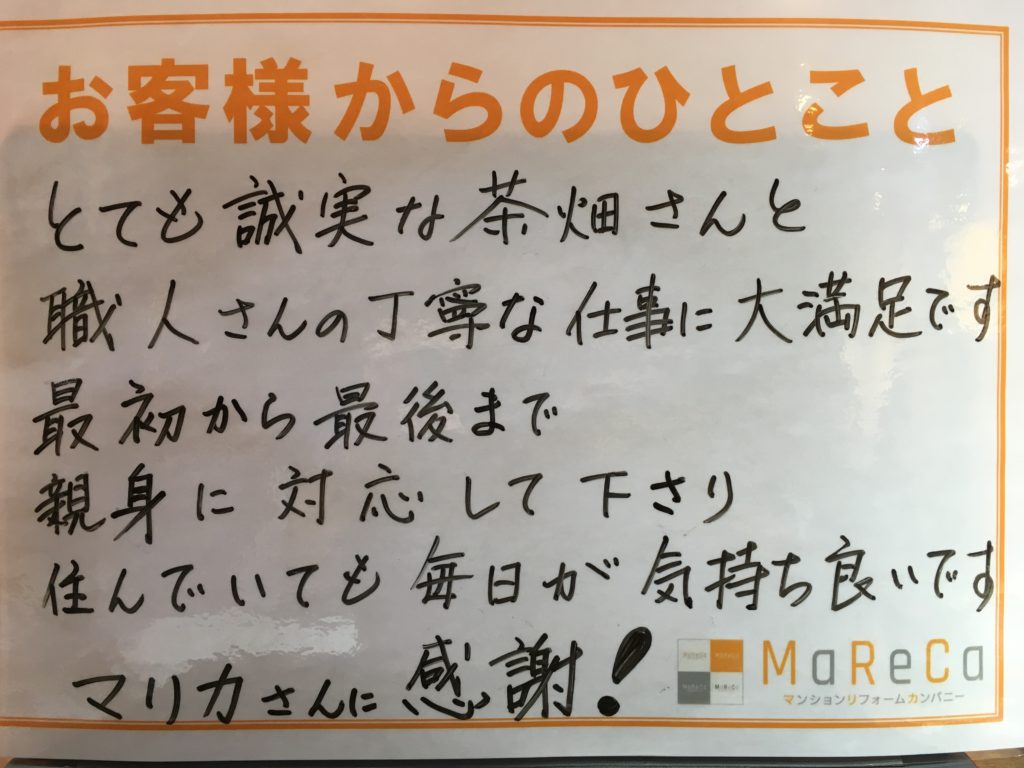 お客様からのひとこと
とても誠実な茶畑さんと
職人さんの丁寧な仕事に大満足です
最初から最後まで
親身に対応して下さり
住んでいても毎日が気持ち良いです
マリカさんに感謝!
MaReCa
マンションリフォームカンパニー